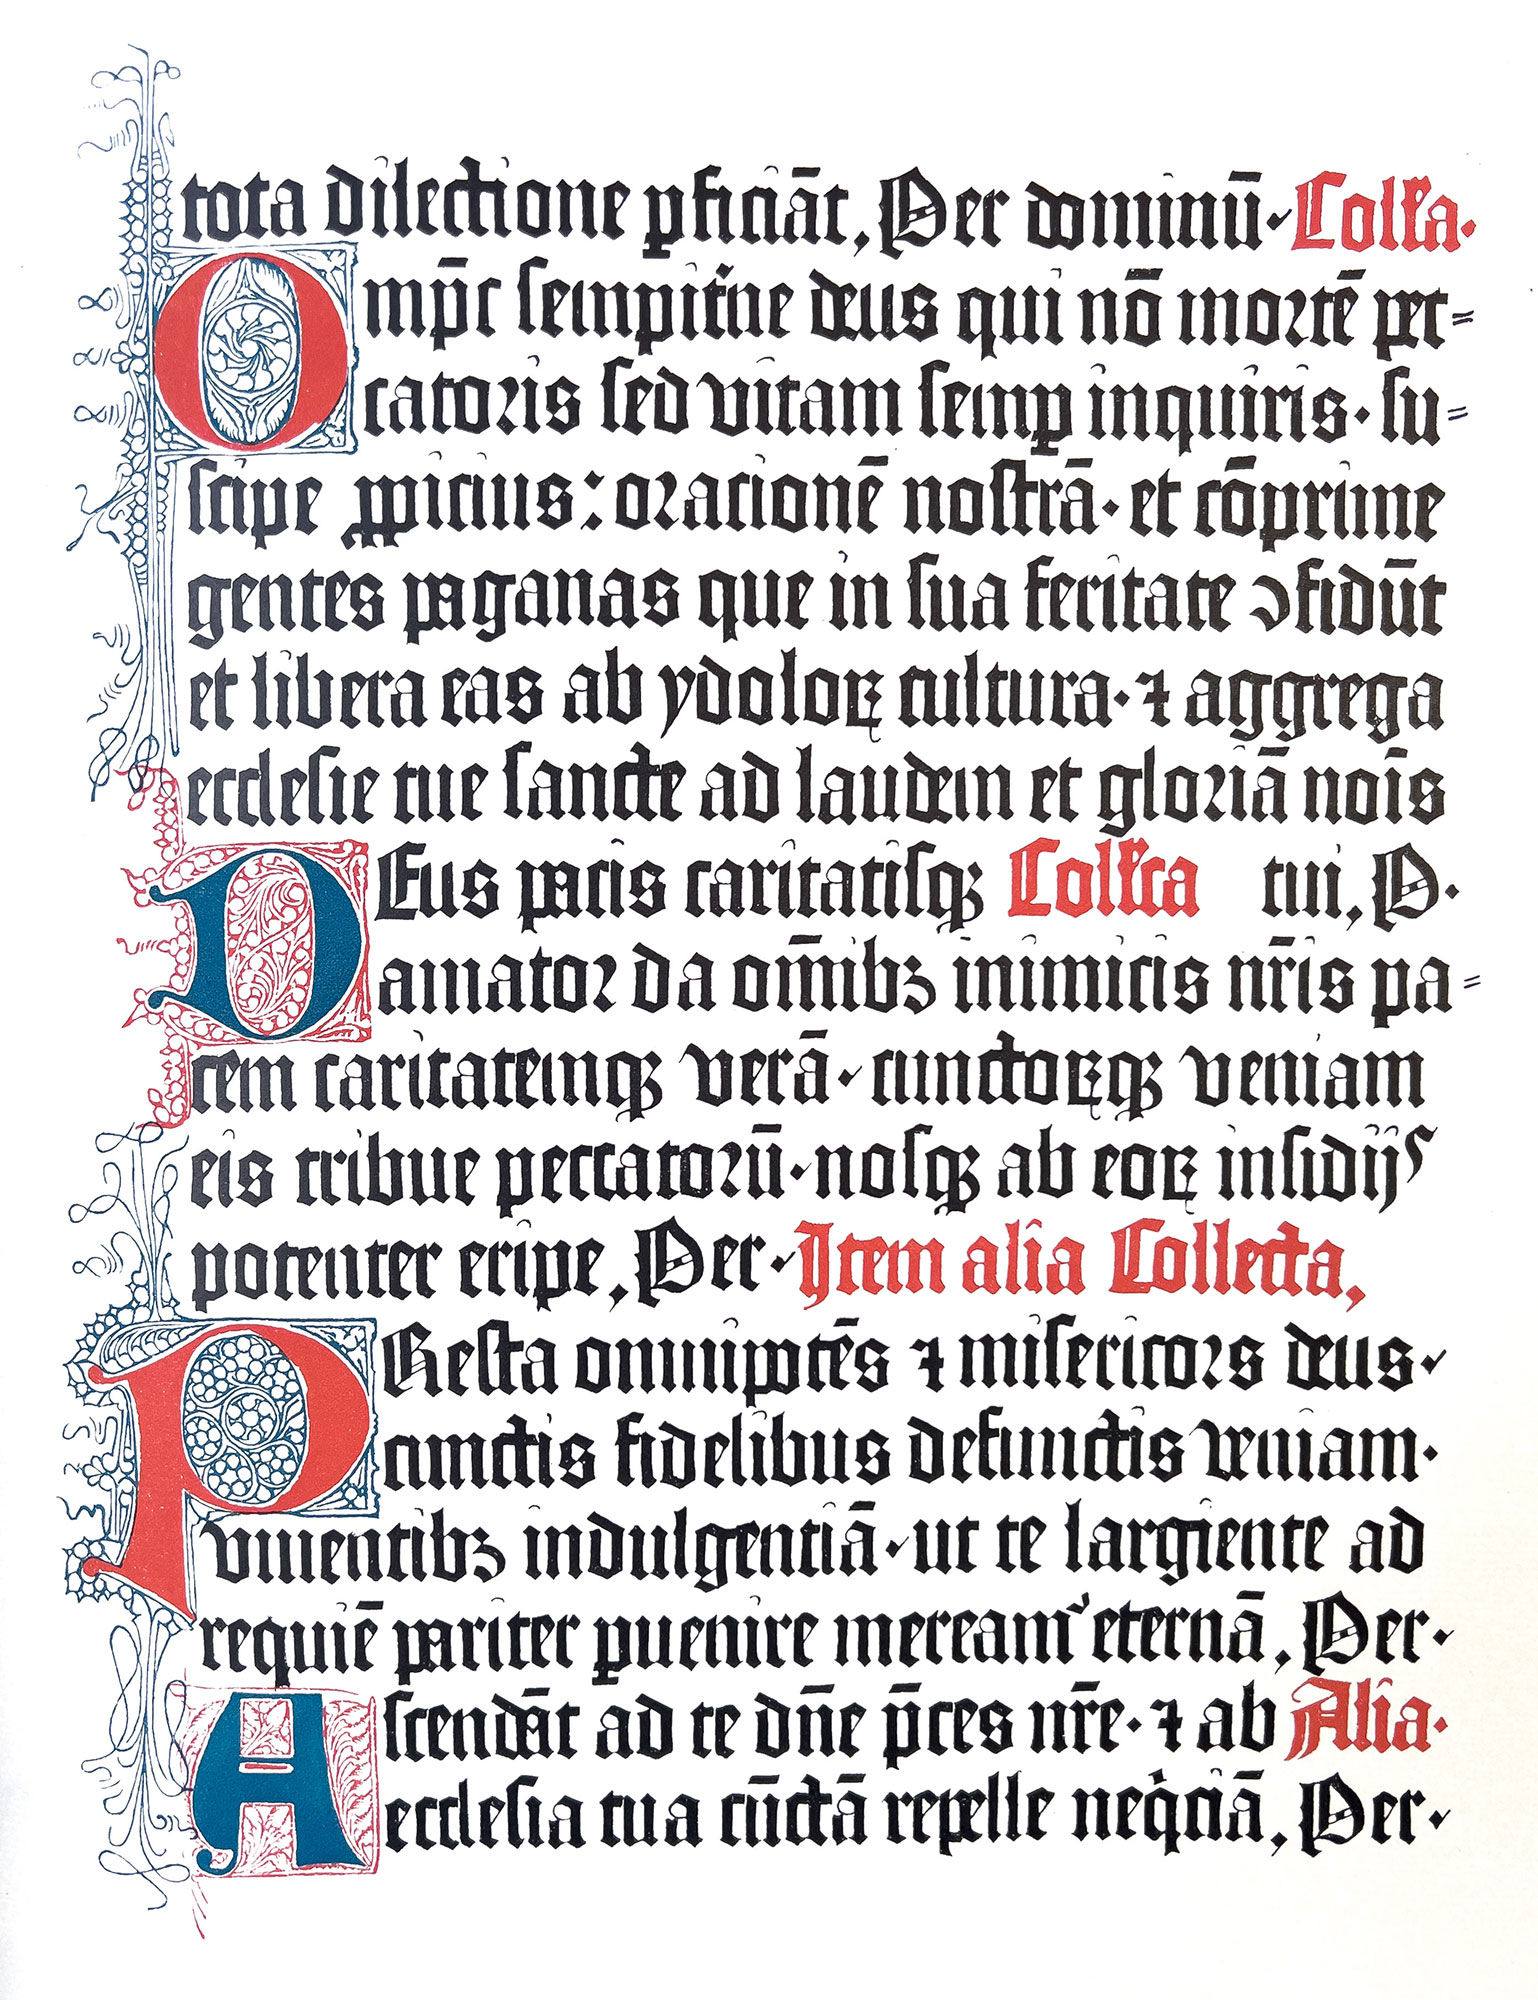 tota dilectione ꝓficiāt, Per dominū· Coll'ca·
Omp̄s sempit'ne deus qui nō mortē pec⸗
catoris sed vitam semꝑ inquiris· su⸗
scipe ꝓpicius: orationē nostrā· et cōprime
gentes paganas que in sua feritate ꝯfidūt
et libera eas ab ydoloꝝ cultura· ⁊ aggrega
ecclesie tue sancte ad laudem et gloriā nōis
DEus pacis caritatisqꝫ Coll'cca tui, P·
amator da om̄ibꝫ inimicis nr̄is pa⸗
cem caritatemqꝫ verā· cunctoꝝqꝫ veniam
eis tribue peccatorū· nosqꝫ ab eoꝝ insidijs
potenter eripe, Per· Item alia Collecta,
PResta omnipotēs ⁊ misericors deus·
cunctis fidelibus defunctis veniam·
viuentibꝫ indulgentiā· ut te largiente ad
requiē pariter ꝑuenire meream' eternā, Per·
Ascendāt ad te dn̄e p̄ces nr̄e· ⁊ ab Alia·
ecclesia tua cūctā repelle neqͥciā, Per·